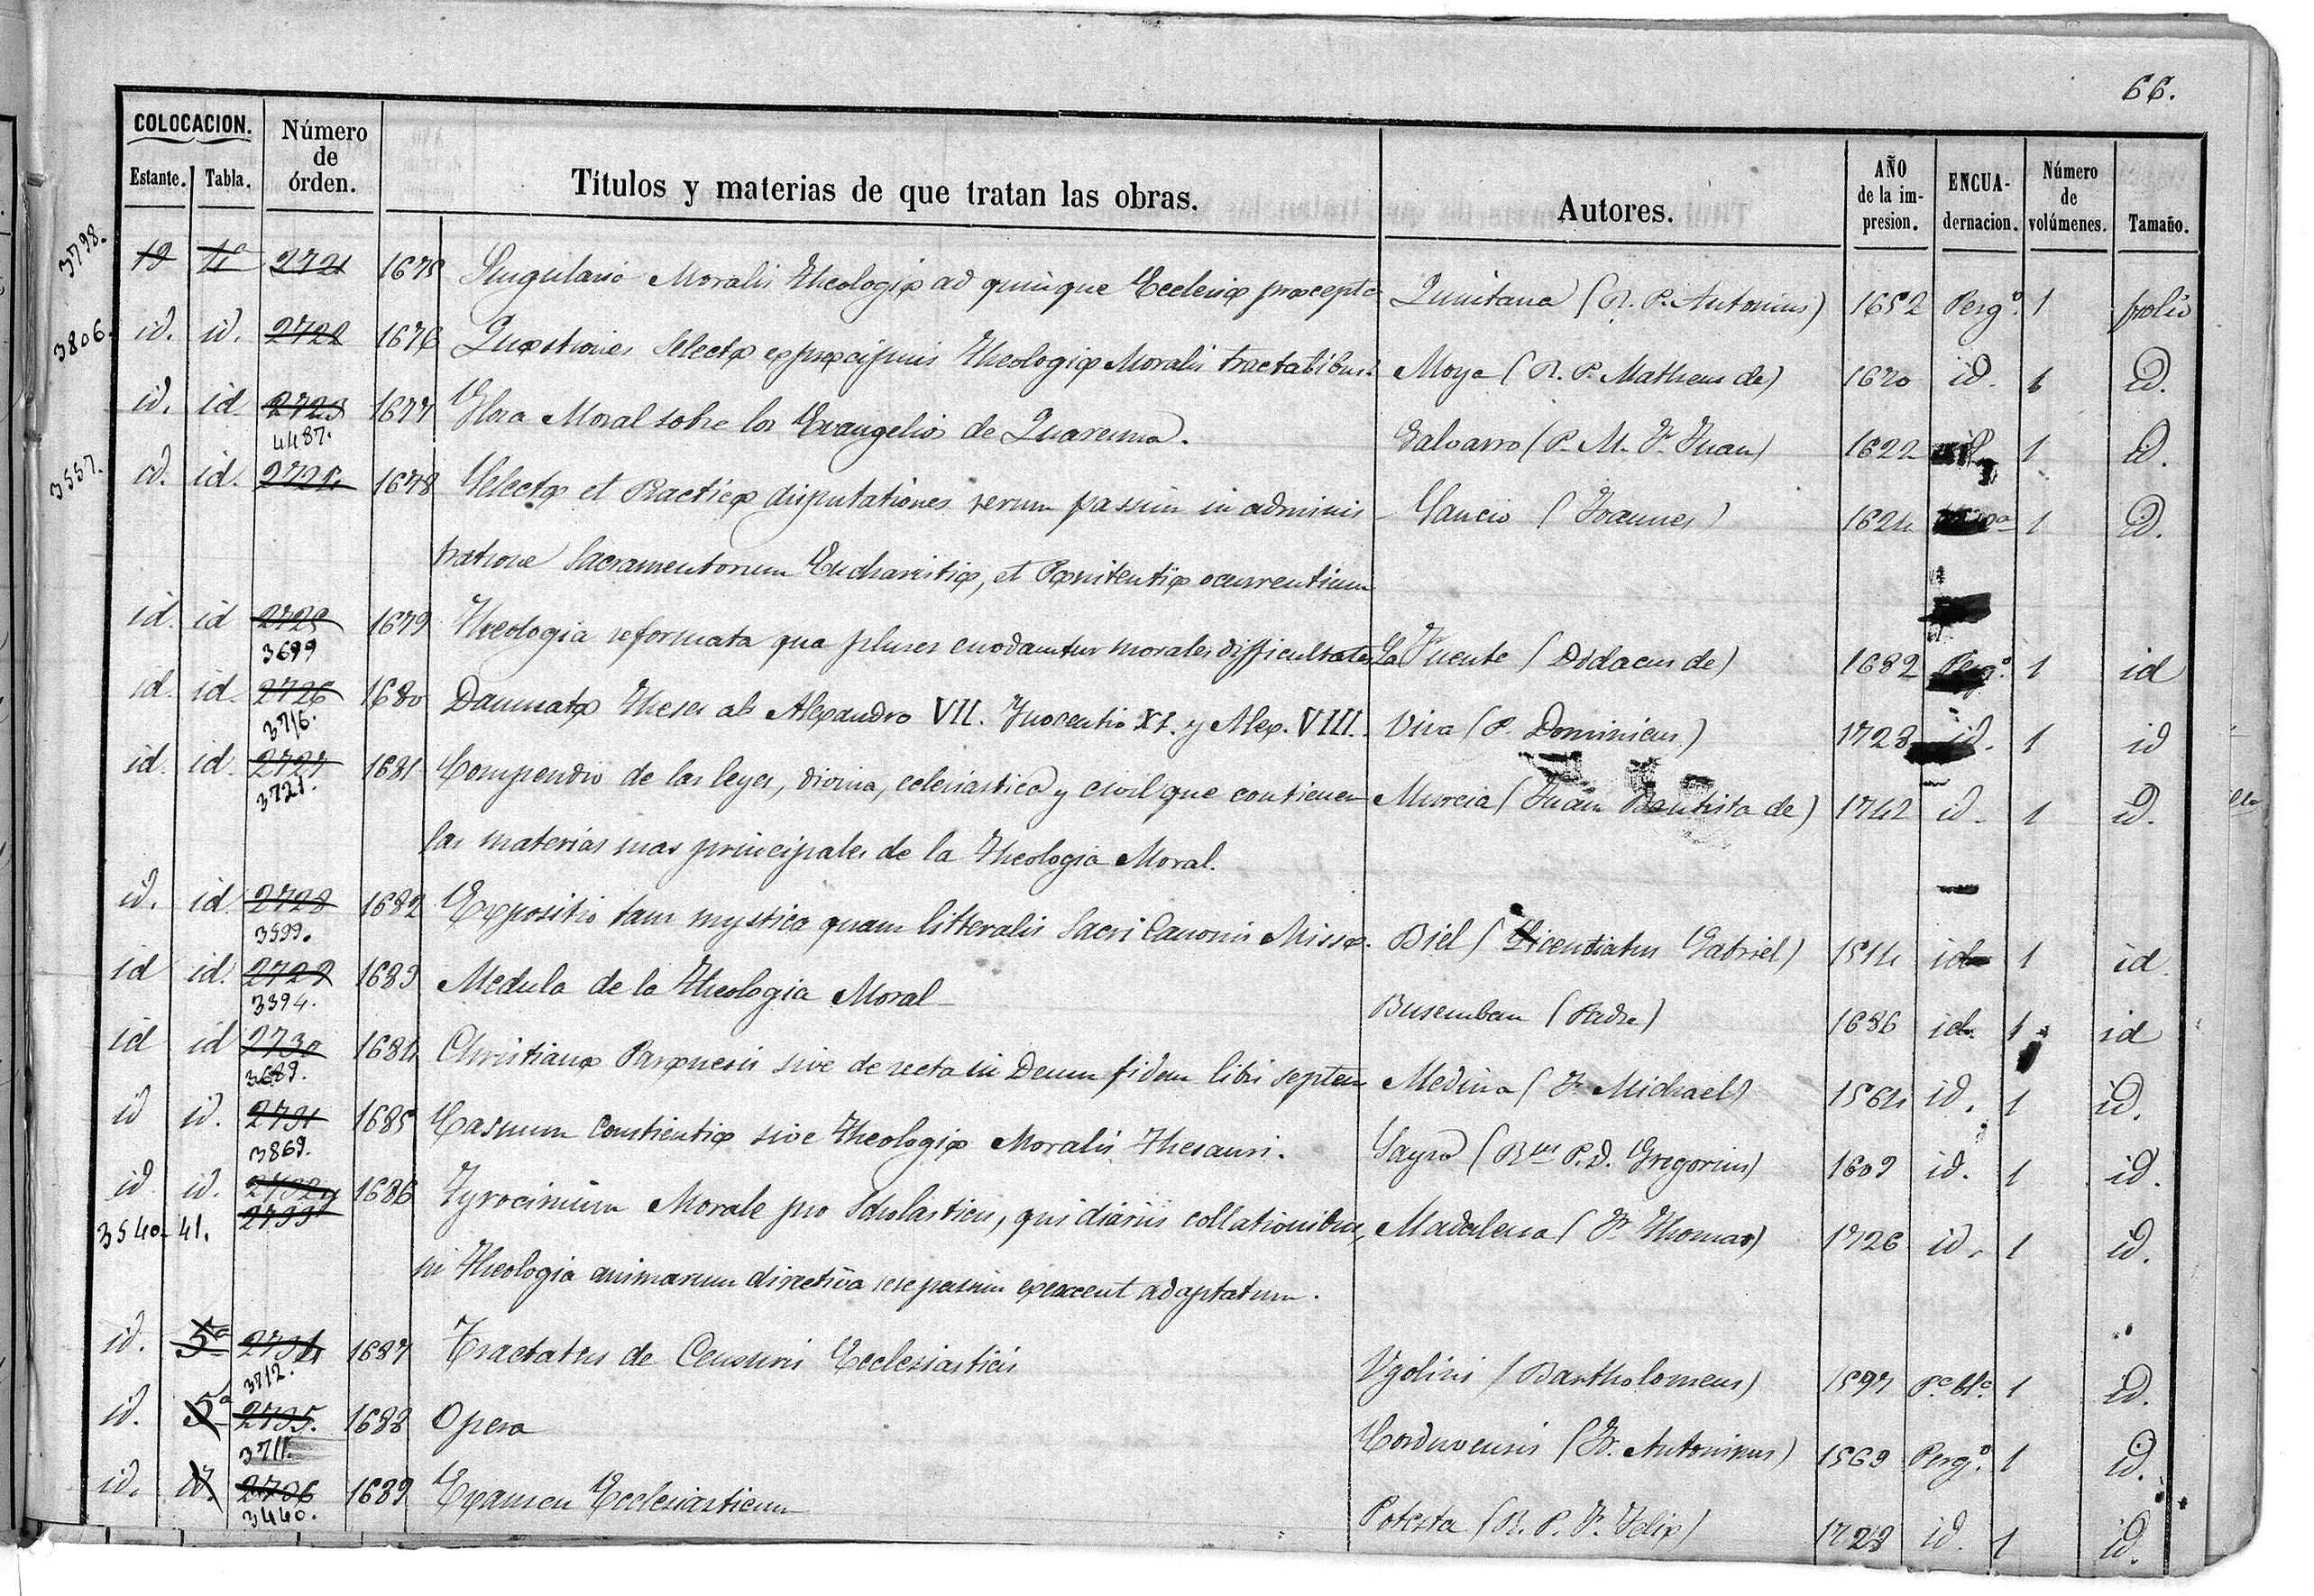 66.
COLOCACION. Número de órden. Títulos y materias de que tratan las obras. Autores. AÑO de la impresion. ENCUADERNACION. Número de volúmenes. Tamaño.
Estante. Tabla.
3798. 19 4ª 2721 1675 Singularia Moralis Theologiæ ad quinque Ecclesiæ præcepta Quintana (R. P. Antonius) 1652 Pergº. 1 folio
3806. id. id. 2722 1676 Quæstiones selectæ ex præcipuis Theologiæ Moralis tractatibus. Moya (R. P. Matheus de) 1670 id. 1 id.
id. id. 2723 1677 Glosa Moral sobre los Evangelios de Quaresma. Galvarro (P. M. F. Juan) 1622 id. 1 id.
4487.
3557. id. id. 2724 1678 Selectæ et Practicæ disputationes rerum passim in adminis- Sancio (Joannes) 1624 1 id.
tratione Sacramentorum Eucharistiæ, et Pœnitentiæ ocurrentium
id. id 2725 1679 Theologia reformata qua plures enodantur morales difficultates La Fuente (Didacus de) 1682 Pergº. 1 id
3699
id. id. 2726 1680 Damnatæ Theses ab Alexandro VII. Inocentio XI. y Alex. VIII. Viva (P. Dominicus) 1723 id. 1 id
3716.
id. id. 2727 1681 Compendio de las leyes, divina, eclesiastica y civil que contienen Murcia (Juan Bautista de) 1742 id. 1 id.
3721.
las materias mas principales de la Theologia Moral.
id. id. 2728 1682 Expositio tam mystica quam litteralis Sacri Canonis Missæ. Biel (Licentiatus Gabriel) 1514 id 1 id.
3599.
id id. 2729 1683 Medula de la Theologia Moral Busembau (Padre) 1686 id. 1 id
3394.
id id 2730 1684 Christianæ Parænesis sive de recta in Deum fidem libri septem Medina (F. Michael) 1564 id. 1 id.
3689.
id id. 2731 1685 Casuum Constientiæ sive Theologiæ Moralis Thesauri. Sayro (Rus P. D. Gregorius) 1609 id. 1 id.
3869.
id id. 2732 y 1686 Tyrocinium Morale pro Scholasticis, qui diariis collationibus, Madalena (F. Thomas) 1726 id. 1 id.
3540-41. 2733
in Theologia animarum directiva sese passim exercent adaptatum.
id. 5ª 2734 1687 Tractatus de Censuris Ecclesiasticis Vgolini (Bartholomeus) 1597 Pª Hª 1 id.
3712.
id. 5ª 2735. 1688 Opera Corduvensis (F. Antoninus) 1569 Pergº. 1 id.
3711.
id. id. 2736 1689 Examen Ecclesiasticum Potesta (R. P. F. Felix) 1723 id. 1 id.
3440.